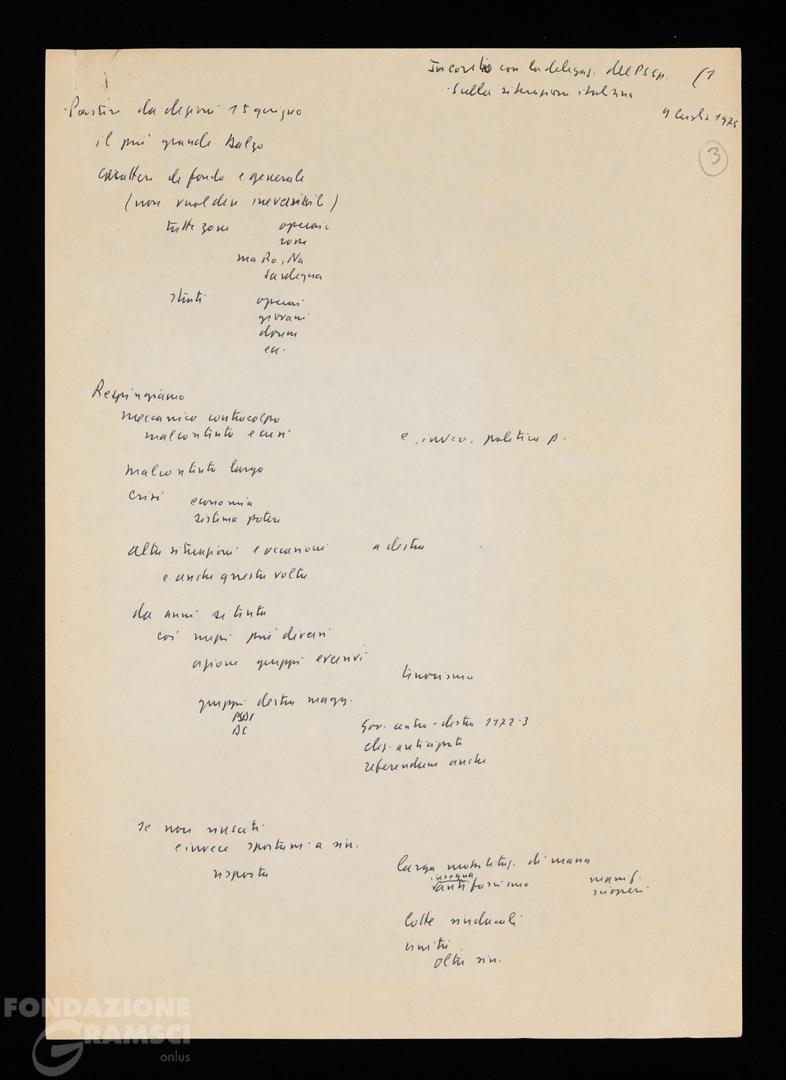 Incontro con la delegaz. del PCSp. (1
sulla situazione italiana
9 luglio 1975
3
Partire da elezioni 15 giugno
il più grande balzo
carattere di fondo e generale
(non vuol dire irreversibile)
tutte zone operaie
rosse
ma Ro, Na
Sardegna
strati operai
giovani
donne
ecc.
Respingiamo
meccanico contraccolpo
malcontento e crisi e, invece, politica p.
malcontento largo
crisi economia
sistema potere
altre situazioni e occasioni a destra
e anche questa volta
da anni si tenta
coi mezzi più diversi
azione gruppi eversivi
terrorismo
gruppi destra magg.
PSDI
DC
Gov. centro-destra 1972-3
elez. anticipate
referendum anche
se non riusciti
e invece spostam. a sin.
risposta
larga mobilitaz. di massa
insegna
antifascismo manif.
scioperi
lotte sindacali
unità
oltre sin.
FONDAZIONE
GRAMSCI
onlus